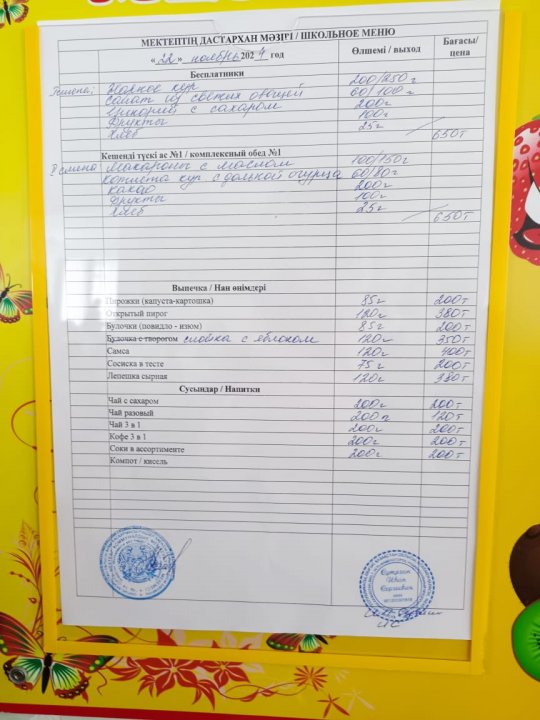 МЕКТЕПТІҢ ДАСТАРХАН МӘЗІРІ / ШКОЛЬНОЕ МЕНЮ
« 22 » ноябрь 2024 год Өлшемі / выход Бағасы/ цена
Бесплатники
I смена; Жаркое кур 200/250 г
Салат из свежих овощей 60/100 г
Цикорий с сахаром 200г
Фрукты 100г
Хлеб 25г 650т
Кешенді түскі ас №1 / комплексный обед №1
II смена Макароны с маслом 100/150г
Котлета кур с долькой огурца 60/80г
какао 200г
Фрукты 100г
Хлеб 25г 650т
Выпечка / Нан өнімдері
Пирожки (капуста-картошка) 85г 200т
Открытый пирог 120г 380т
Булочки (повидло - изюм) 85г 200т
Булочка с творогом слойка с яблоком 120г 350т
Самса 120г 400т
Сосиска в тесте 75г 200т
Лепешка сырная 120г 380т
Сусындар / Напитки
Чай с сахаром 200г 200т
Чай разовый 200г 120т
Чай 3 в 1 200г 200т
Кофе 3 в 1 200г 200т
Соки в ассортименте 200г 200т
Компот / кисель
Иван
Сергеевич